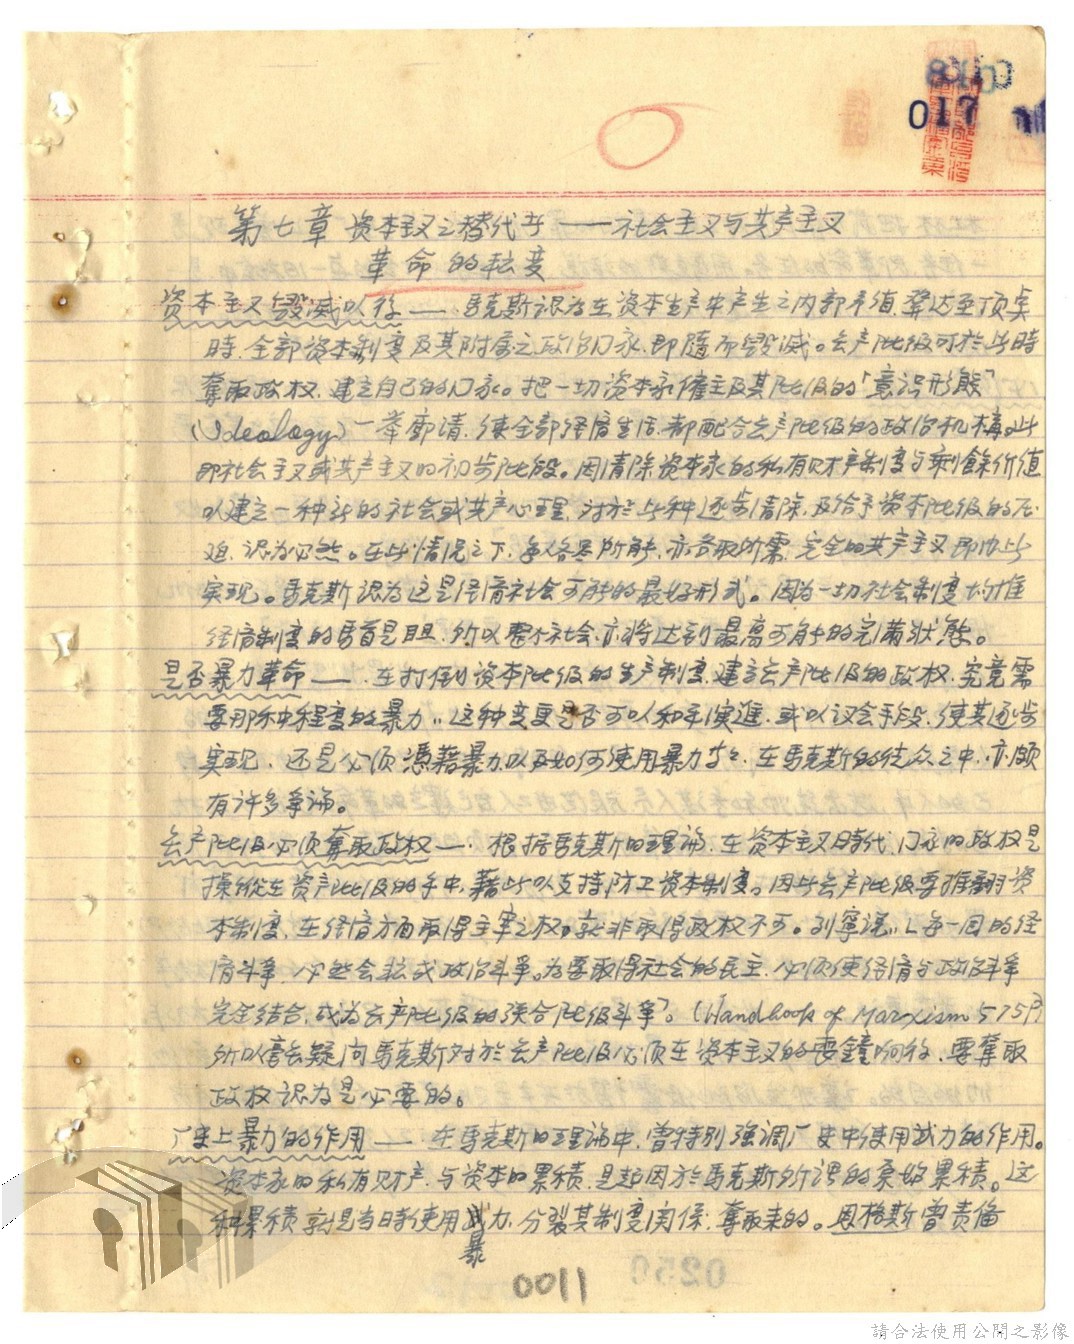 017
第七章 资本主义之替代者——社会主义与共产主义
革命的転变
资本主义毁灭以後——马克斯认为在资本生产中产生之内部矛盾,發达至顶点
時,全部资本制度及其附属之政治囗家,即随而毁灭。無产阶级可於此時
奪取政权,建立自己的囗家。把一切资本家僱主及其阶级的「意识形態」
(Ideology)一举廓清,使全部经济生活,都配合無产阶级的政治机構。此
即社会主义或共产主义的初步阶段。因清除资本家的私有财产制度与剩餘价值
以建立一种新的社会或共产心理,对於此种逐步清除,及给予资本阶级的压
迫,认为必然。在此情况之下,每人各尽所能,亦各取所需,完全的共产主义即由此
实现。马克斯认为这是经济社会可能的最好形式。因为一切社会制度均惟
经济制度的马首是瞻,所以整个社会,亦将达到最高可能的完满状態。
是否暴力革命——在打倒资本阶级的生产制度,建立無产阶级的政权,究竟需
要那种程度的暴力,这种变更是否可以和平演進,或以议会手段,使其逐步
实现,还是必须憑藉暴力,以及如何使用暴力等等,在马克斯的徒众之中,亦颇
有许多争论。
無产阶级必须奪取政权——根据马克斯的理论,在资本主义時代,囗家的政权是
操纵在资产阶级的手中,藉此以支持防卫资本制度。因此無产阶级要推翻资
本制度,在经济方面取得主宰之权,就非取得政权不可。列寧说:「每一国的经
济斗争,必然会転成政治斗争。为要取得社会的民主,必须使经济与政治斗争
完全结合,成为無产阶级的联合阶级斗争」。(Handbook of Marxism 575P)
所以毫無疑问马克斯对於無产阶级必须在资本主义的喪鐘响後,要奪取
政权认为是必要的。
厂史上暴力的作用——在马克斯的理论中,曾特别强调厂史中使用武力的作用。
资本家的私有财产,与资本的累积,是起因於马克斯所谓的原始累积。这
种累积,就是当時使用武力,分裂其制度関係,奪取来的。恩格斯曾责备
暴
0011
0250
請合法使用公開之影像